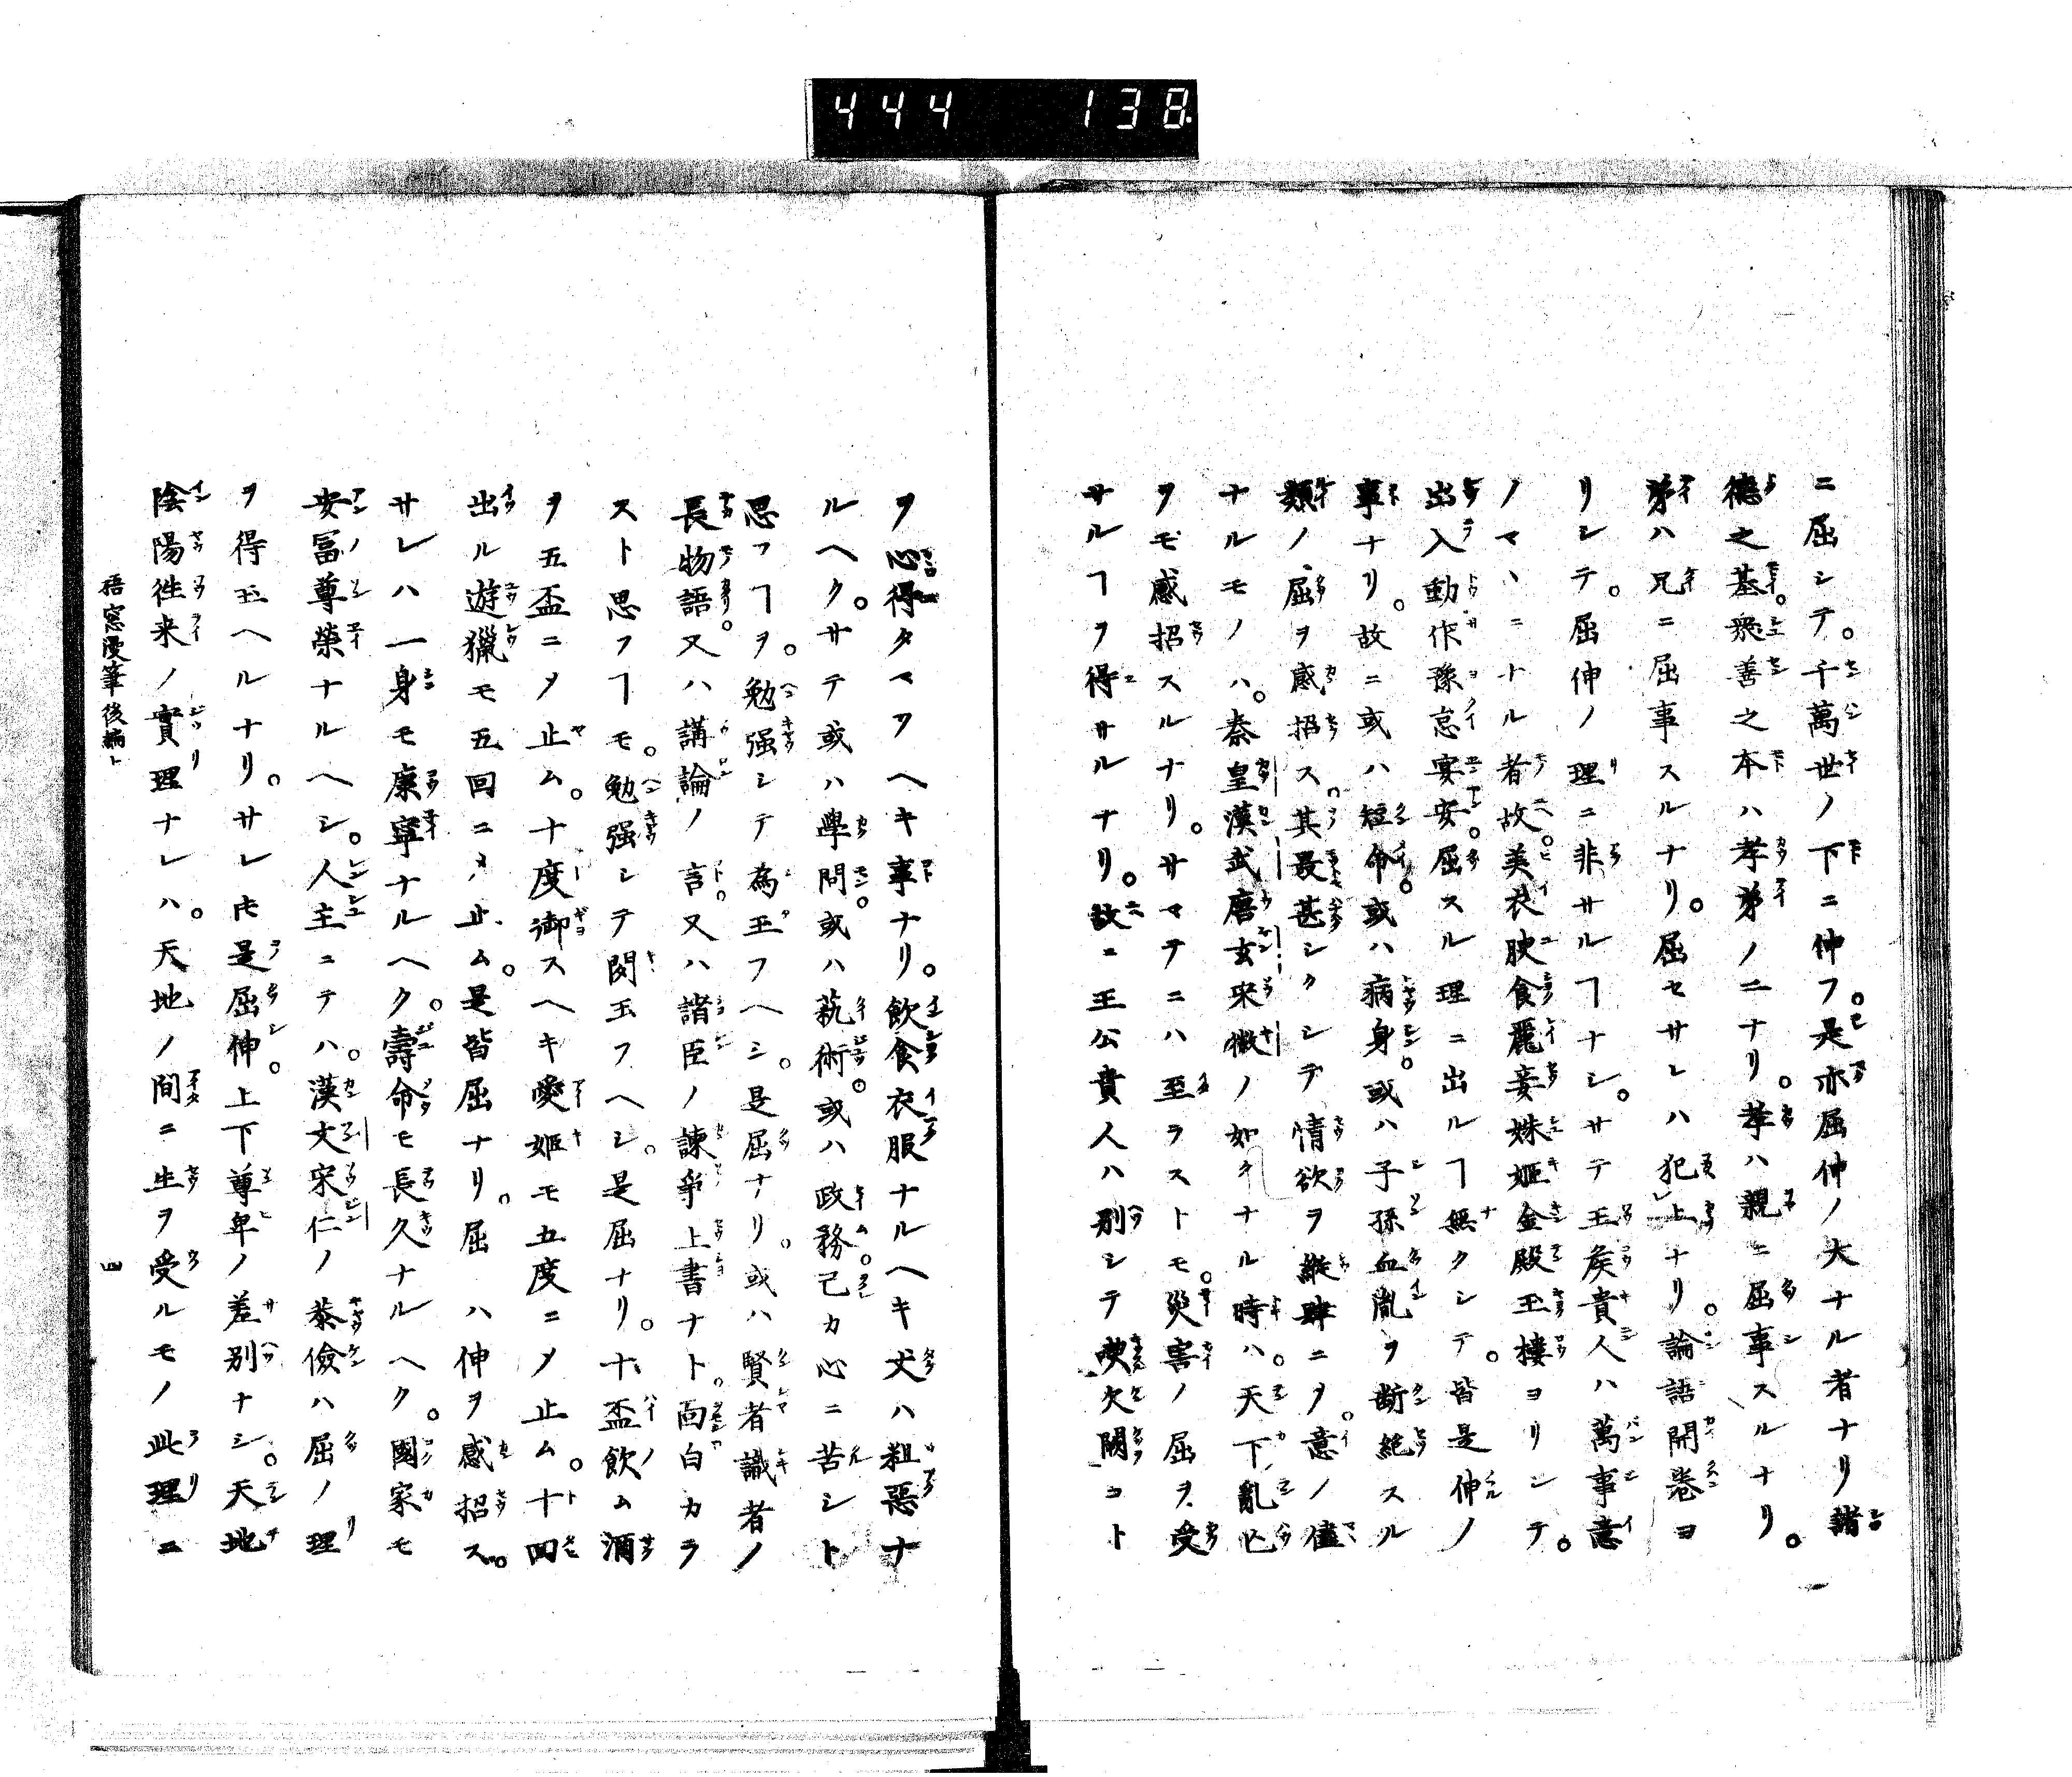 444 138
ニ屈シテ。千萬世ノ下ニ伸フ。是亦屈伸ノ大ナル者ナリ諸
德之基。衆善之本ハ孝弟ノ二ナリ。孝ハ親ニ屈事スルナリ。
弟ハ兄ニ屈事スルナリ。屈セサレハ犯上ナリ。論語開卷ヨ
リシテ。屈伸ノ理ニ非サルヿナシ。サテ王矦貴人ハ萬事意
ノマヽニナル者故。美衣腴食麗妾姝姬金殿玉樓ヨリシテ。
出入動作豫怠宴安。屈スル理ニ出ルヿ無クシテ。皆是伸ノ
事ナリ。故ニ或ハ短命。或ハ病身。或ハ子孫血胤ヲ断絶スル
類ノ屈ヲ感招ス。其最甚シクシテ情欲ヲ縦肆ニヲ。意ノ儘
ナルモノハ。秦皇漢武唐玄宋徽ノ如クナル時ハ。天下亂亡
ヲモ感招スルナリ。サマテニハ至ラストモ。災害ノ屈ヲ受
サルヿヲ得サルナリ。故ニ王公貴人ハ別シテ喫欠閼コト
ヲ心得タマフヘキ事ナリ。飲食衣服ナルヘキ丈ハ粗惡ナ
ルヘク。サテ或ハ學問。或ハ藝術。或ハ政務。己カ心ニ苦シト
思フヿヲ。勉强シテ為玉フヘシ。是屈ナリ。或ハ賢者識者ノ
長物語。又ハ講論ノ言。又ハ諸臣ノ諫爭上書ナト。面白カラ
スト思フヿモ。勉强シテ聞玉フヘシ。是屈ナリ。十盃飲ム酒
ヲ五盃ニメ止ム。十度御スヘキ愛姬モ五度ニメ止ム。十回
出ル遊獵モ五回ニメ止ム。是皆屈ナリ。屈ハ伸ヲ感招ス。
サレハ一身モ康寧ナルヘク。壽命モ長久ナルヘク。國家モ
安冨尊榮ナルヘシ。人主ニテハ。漢文宋仁ノ恭儉ハ屈ノ理
ヲ得玉ヘルナリ。サレ𪜈是屈伸。上下尊卑ノ差別ナシ。天地
陰陽徃来ノ實理ナレハ。天地ノ間ニ生ヲ受ルモノ此理ニ
梧窓漫筆後編上 四